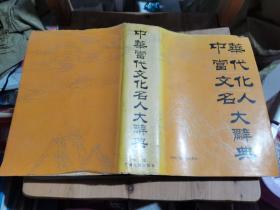 中華當代文化名人大辭典
中華
當代
文化
名人
大
辭
典